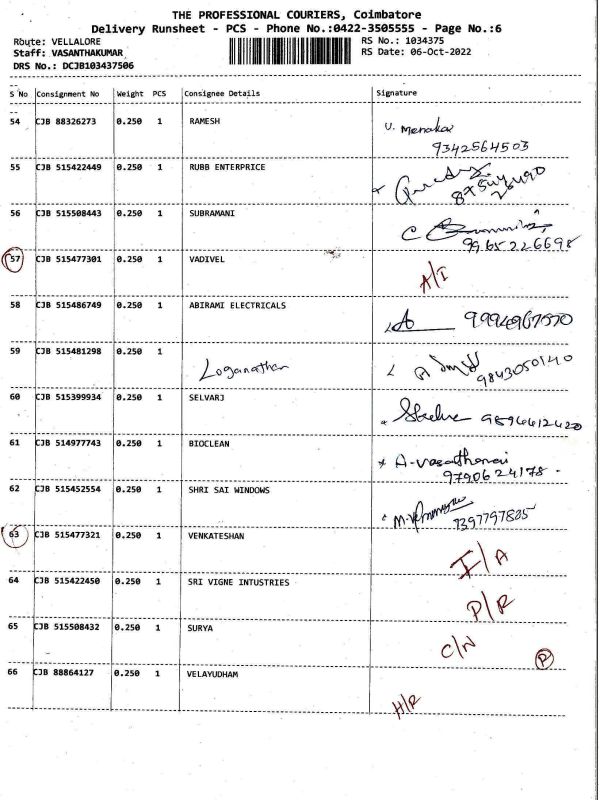 THE PROFESSIONAL COURIERS, Coimbatore
Delivery Runsheet - PCS - Phone No.:0422-3505555 - Page No.:6
Route: VELLALORE
RS No.: 1034375
Staff: VASANTHAKUMAR
RS Date: 06-Oct-2022
DRS No.: DCJB103437506
S No Consignment No Weight PCS Consignee Details Signature
54 CJB 88326273 0.250 1 RAMESH U. Menaka
9342564503
55 CJB 515422449 0.250 1 RUBB ENTERPRICE
56 CJB 515508443 0.250 1 SUBRAMANI C
9965226698
57 CJB 515477301 0.250 1 VADIVEL A/I
58 CJB 515486749 0.250 1 ABIRAMI ELECTRICALS
59 CJB 515481298 0.250 1 Loganathan
9843050140
60 CJB 515399934 0.250 1 SELVARJ
61 CJB 514977743 0.250 1 BIOCLEAN A-vasathanai
9790624178
62 CJB 515452554 0.250 1 SHRI SAI WINDOWS
7397797805
63 CJB 515477321 0.250 1 VENKATESHAN I/A
64 CJB 515422450 0.250 1 SRI VIGNE INTUSTRIES P/R
65 CJB 515508432 0.250 1 SURYA C/N R
66 CJB 88864127 0.250 1 VELAYUDHAM H/R